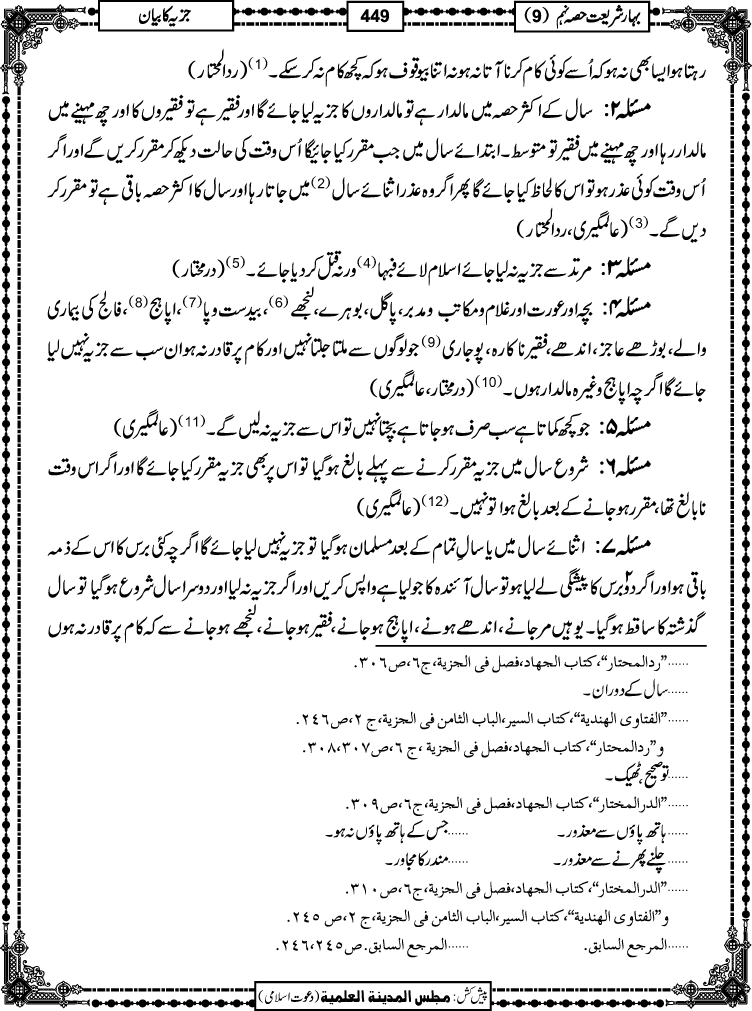 بہارِ شریعت حصہ نہم (9)
449
جزیہ کا بیان
رہتا ہو ایسا بھی نہ ہو کہ اُسے کوئی کام کرنا آتا نہ ہو نہ اتنا بیوقوف ہو کہ کچھ کام نہ کر سکے۔(1) (ردالمحتار)
مسئلہ ۲: سال کے اکثر حصہ میں مالدار ہے تو مالداروں کا جزیہ لیا جائے گا اور فقیر ہے تو فقیروں کا اور چھ مہینے میں
مالدار رہا اور چھ مہینے میں فقیر تو متوسط۔ ابتدائے سال میں جب مقرر کیا جائیگا اُس وقت کی حالت دیکھ کر مقرر کریں گے اور اگر
اُس وقت کوئی عذر ہو تو اس کا لحاظ کیا جائے گا پھر اگر وہ عذر اثنائے سال(2) میں جاتا رہا اور سال کا اکثر حصہ باقی ہے تو مقرر کر
دیں گے۔(3) (عالمگیری، ردالمحتار)
مسئلہ ۳: مرتد سے جزیہ نہ لیا جائے اسلام لائے فبہا(4) ورنہ قتل کر دیا جائے۔(5) (درمختار)
مسئلہ ۴: بچہ اور عورت اور غلام و مکاتب و مدبر، پاگل، بوہرے، لنجھے(6)، بیدست و پا(7)، اپاہج(8)، فالج کی بیماری
والے، بوڑھے عاجز، اندھے، فقیر ناکارہ، پوجاری(9) جو لوگوں سے ملتا جلتا نہیں اور کام پر قادر نہ ہو ان سب سے جزیہ نہیں لیا
جائے گا اگرچہ اپاہج وغیرہ مالدار ہوں۔(10) (درمختار، عالمگیری)
مسئلہ ۵: جو کچھ کماتا ہے سب صرف ہو جاتا ہے بچتا نہیں تو اس سے جزیہ نہ لیں گے۔(11) (عالمگیری)
مسئلہ ۶: شروع سال میں جزیہ مقرر کرنے سے پہلے بالغ ہو گیا تو اس پر بھی جزیہ مقرر کیا جائے گا اور اگر اس وقت
نابالغ تھا، مقرر ہو جانے کے بعد بالغ ہوا تو نہیں۔(12) (عالمگیری)
مسئلہ ۷: اثنائے سال میں یا سال تمام کے بعد مسلمان ہو گیا تو جزیہ نہیں لیا جائے گا اگرچہ کئی برس کا اس کے ذمہ
باقی ہو اور اگر دو۲ برس کا پیشگی لے لیا ہو تو سال آئندہ کا جو لیا ہے واپس کریں اور اگر جزیہ نہ لیا اور دوسرا سال شروع ہو گیا تو سال
گذشتہ کا ساقط ہو گیا۔ یوہیں مر جانے، اندھے ہونے، اپاہج ہو جانے، فقیر ہو جانے، لنجھے ہو جانے سے کہ کام پر قادر نہ ہوں
......"ردالمحتار"، کتاب الجهاد، فصل فی الجزیة، ج٦، ص٣٠٦.
......سال کے دوران۔
......"الفتاوی الهندیة"، کتاب السیر، الباب الثامن فی الجزیة، ج ٢، ص ٢٤٦.
و "ردالمحتار"، کتاب الجهاد، فصل فی الجزیة ، ج ٦، ص٣٠٧، ٣٠٨.
......تو صحیح، ٹھیک۔
......"الدرالمختار"، کتاب الجهاد، فصل فی الجزیة، ج٦، ص ٣٠٩.
......ہاتھ پاؤں سے معذور۔ ......جس کے ہاتھ پاؤں نہ ہو۔
......چلنے پھرنے سے معذور۔ ......مندر کا مجاور۔
......"الدرالمختار"، کتاب الجهاد، فصل فی الجزیة، ج٦، ص ٣١٠.
و "الفتاوی الهندیة"، کتاب السیر، الباب الثامن فی الجزیة، ج ٢، ص ٢٤٥.
......المرجع السابق. ......المرجع السابق. ص٢٤٥، ٢٤٦.
پیش کش: مجلس المدینة العلمیة (دعوتِ اسلامی)